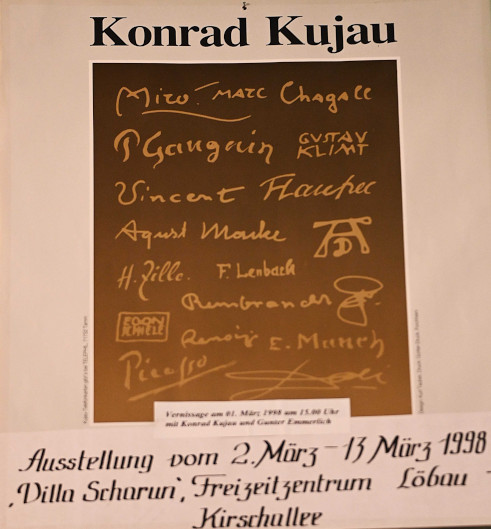 Konrad Kujau
Miro. MARC Chagall
P Gauguin GUSTAV KLIMT
Vincent
August Macke AD
H. Zille. F. Lenbach
Rembrandt
EGON SCHIELE
Renoir E. Munch
Picasso Dali
Vernissage am 01. März 1998 um 15.00 Uhr
mit Konrad Kujau und Gunter Emmerlich
Ausstellung vom 2. März - 13 März 1998
'Villa Scharun', Freizeitzentrum Löbau -
Kirschallee